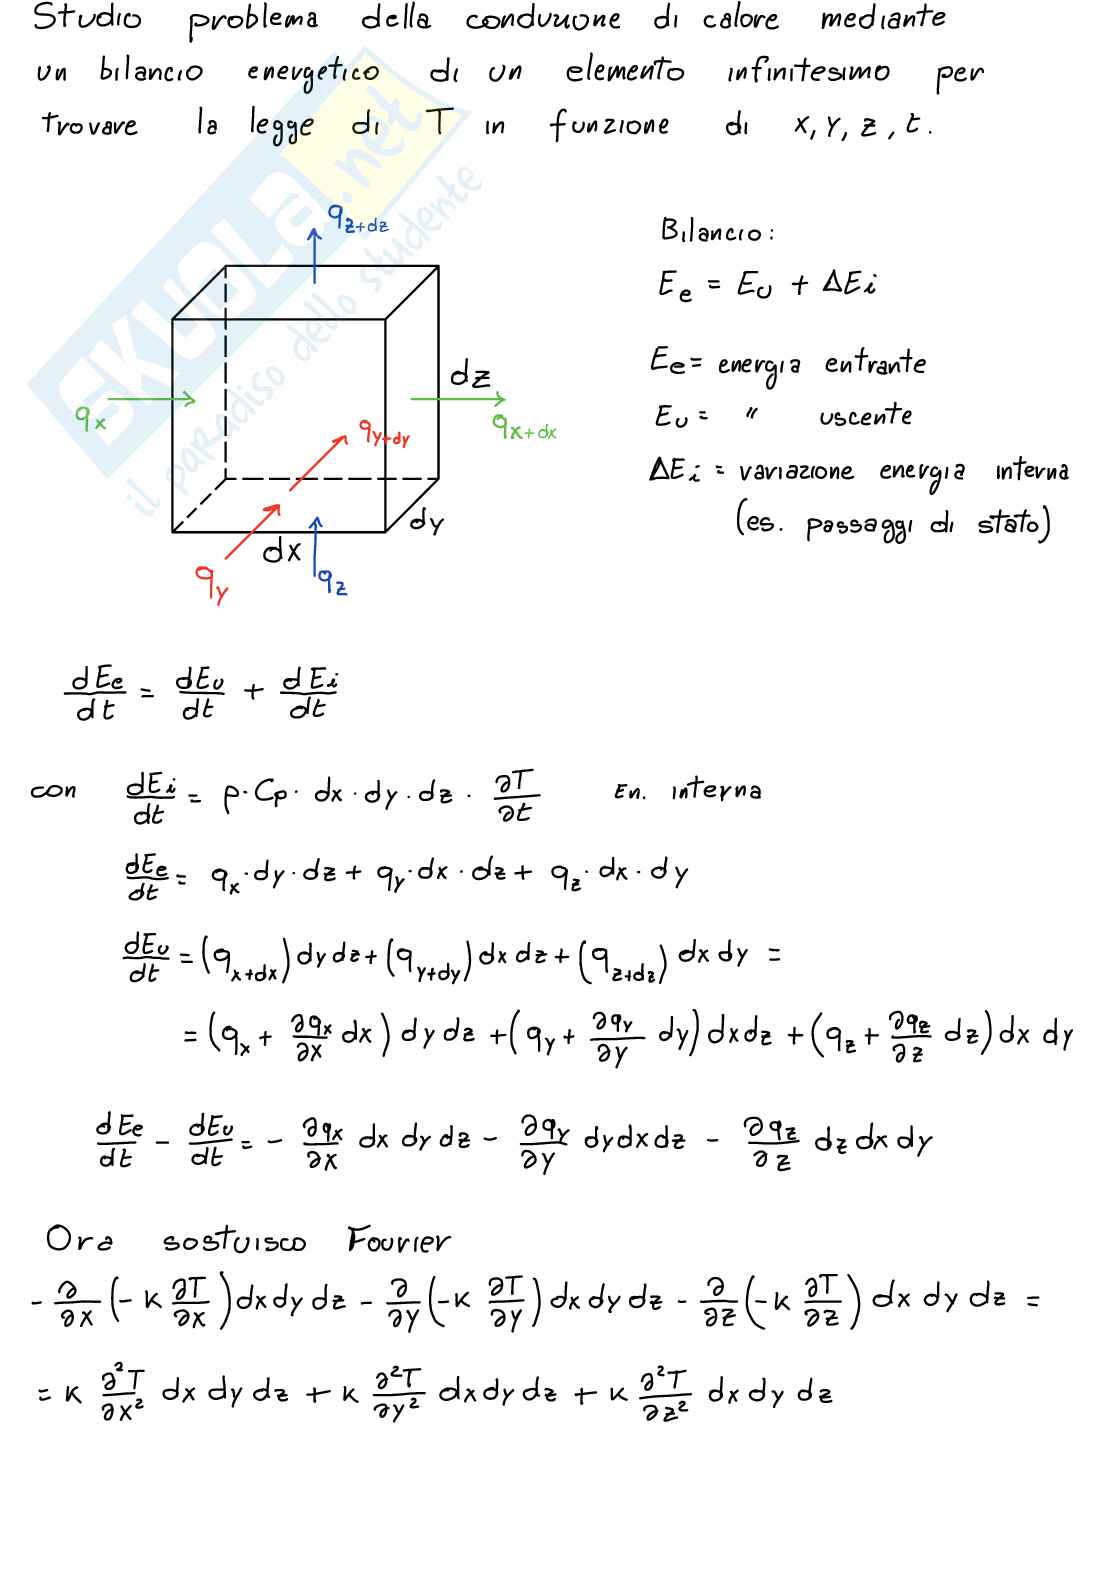 Studio problema della conduzione di calore mediante
un bilancio energetico di un elemento infinitesimo per
trovare la legge di T in funzione di x, y, z, t.
SKUOLA.net
il paradiso dello studente
q_{z+dz}
Bilancio:
E_e = E_u + ΔE_i
E_e = energia entrante
dz
q_x
q_{x+dx}
q_{y+dy}
E_u = " uscente
ΔE_i = variazione energia interna
(es. passaggi di stato)
dy
dx
q_y
q_z
dE_e/dt = dE_u/dt + dE_i/dt
con dE_i/dt = ρ · Cp · dx · dy · dz · ∂T/∂t En. interna
dE_e/dt = q_x · dy · dz + q_y · dx · dz + q_z · dx · dy
dE_u/dt = (q_{x+dx}) dy dz + (q_{y+dy}) dx dz + (q_{z+dz}) dx dy =
= (q_x + ∂q_x/∂x dx) dy dz + (q_y + ∂q_y/∂y dy) dx dz + (q_z + ∂q_z/∂z dz) dx dy
dE_e/dt - dE_u/dt = - ∂q_x/∂x dx dy dz - ∂q_y/∂y dy dx dz - ∂q_z/∂z dz dx dy
Ora sostuisco Fourier
- ∂/∂x (-K ∂T/∂x) dx dy dz - ∂/∂y (-K ∂T/∂y) dx dy dz - ∂/∂z (-K ∂T/∂z) dx dy dz =
= K ∂²T/∂x² dx dy dz + K ∂²T/∂y² dx dy dz + K ∂²T/∂z² dx dy dz